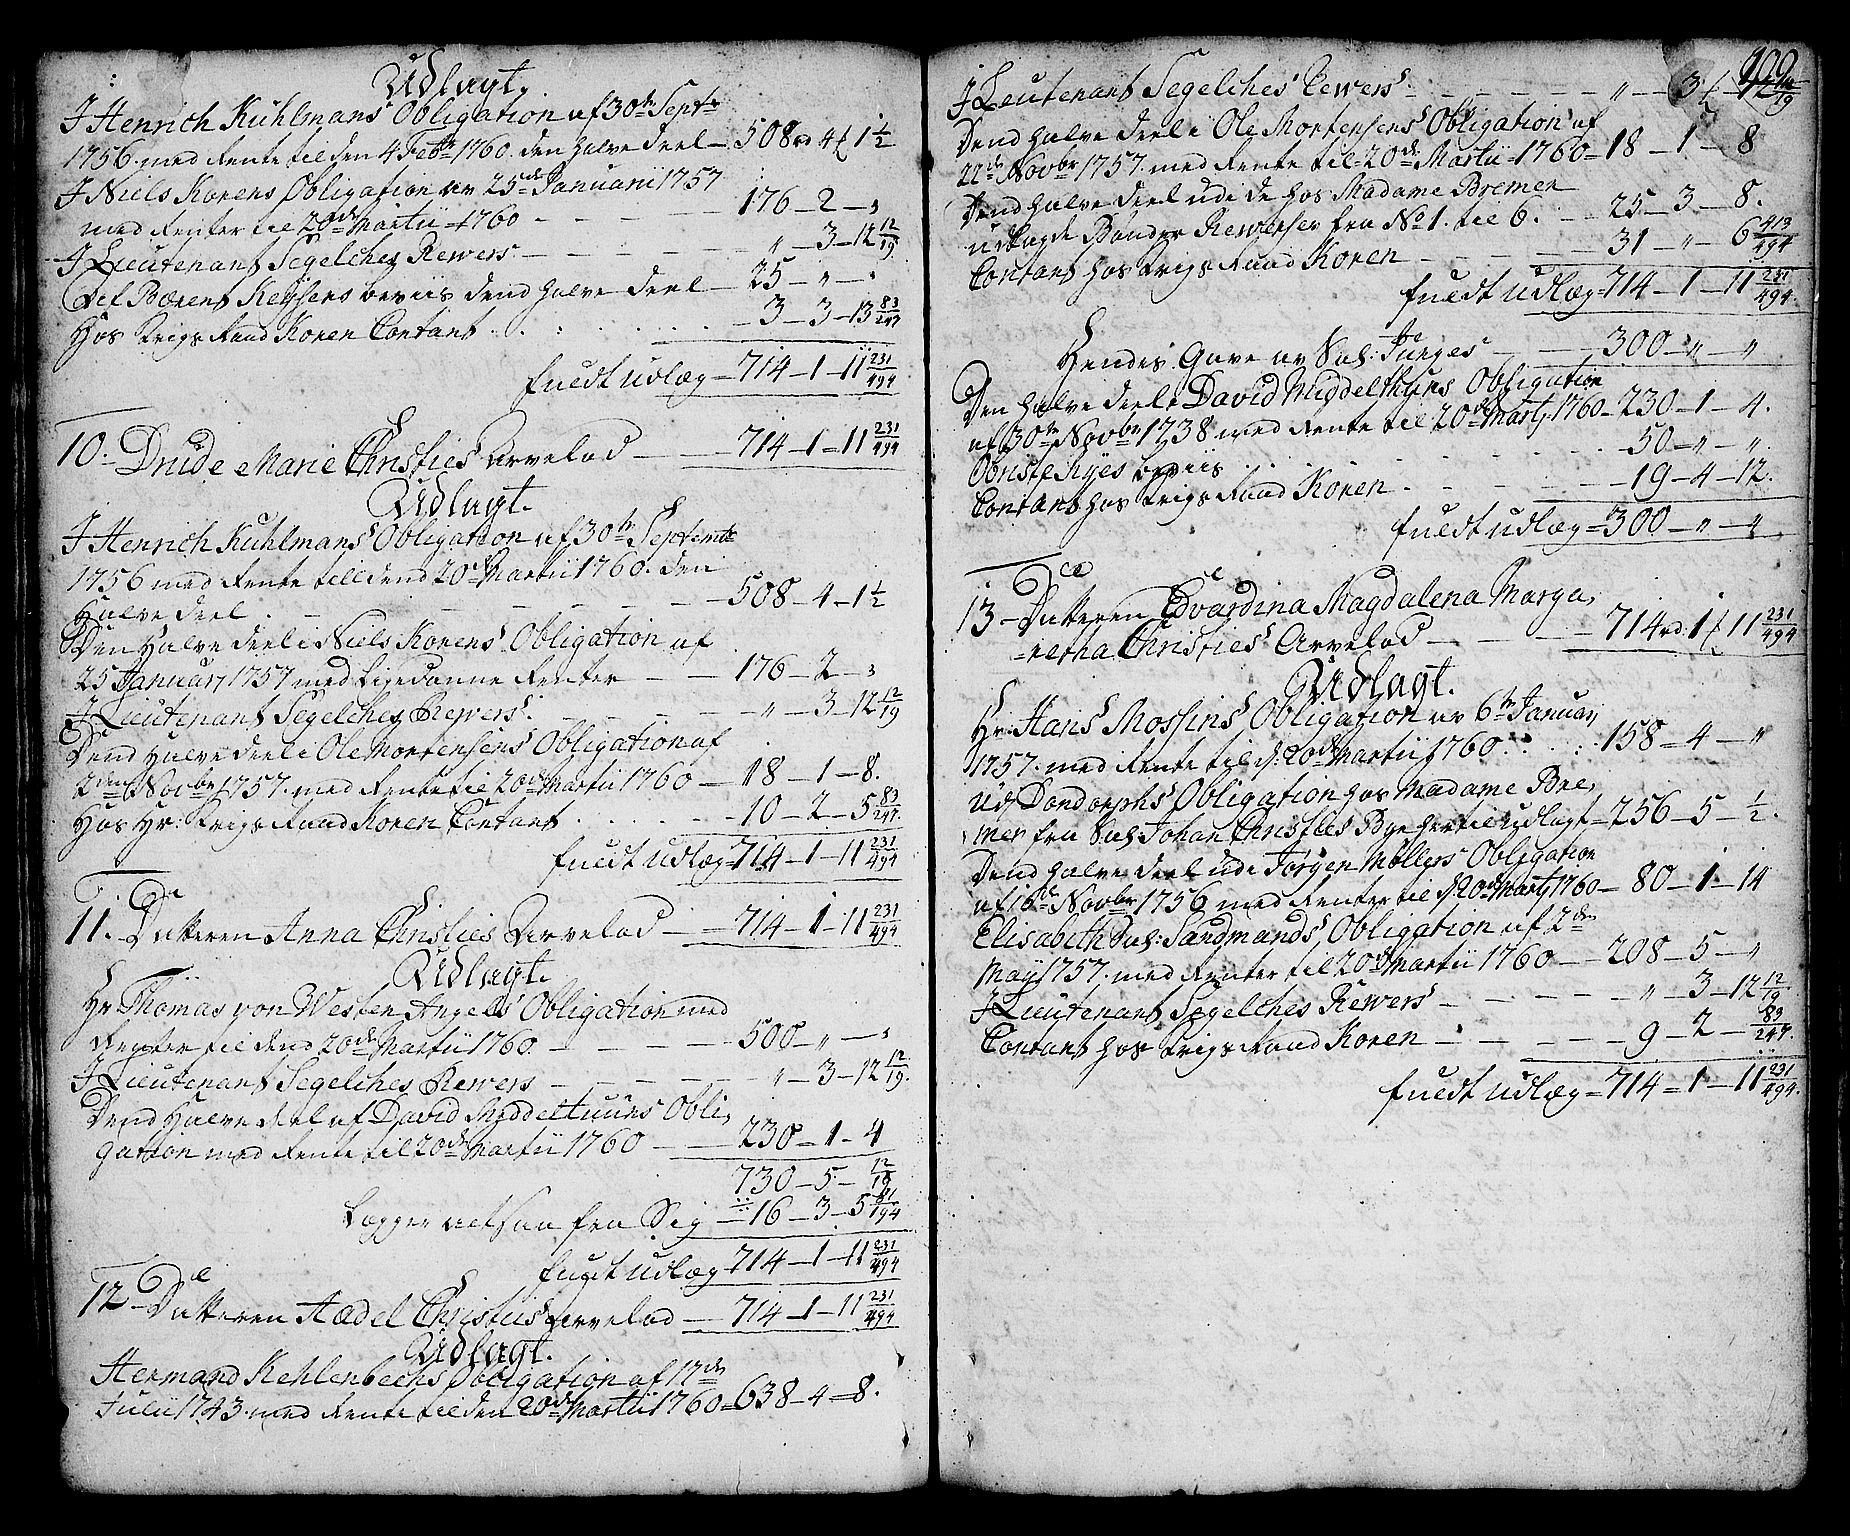 Udlagt.
I Henrich Kühlmans Obligation af 30te Septr
1756 med Rente til den 4 Febr 1760. den halve deel – 508 rd 4 ʄ 1 1/2
I Niels Korens Obligation av 25de Januarii 1757
med Renter til 20de Martii 1760 – 176 – 2 – „
I Lieutenant Segelches Rewers – „ – 3 – 12 12/19
Del Bærent Keysens beviis dend halve deel – 25 – „ – „
Hos Krigs Raad Koren Contant – 3 – 3 – 13 83/247
fuldt udlæg – 714 – 1 – 11 231/494
10. Drude Marie Christies Arvelod – 714 – 1 – 11 231/494
Udlagt.
I Henrich Kuhlmans Obligation af 30te Septembr
1756 med Rente til dend 20de Martii 1760. den
Halve deel – 508 – 4 – 1 1/2
Den Halve deel i Niels Korens Obligation af
25 Januarj 1757 med Ligedanne Renter – 176 – 2 – „
I Lieutenant Segelches Rewers – „ – 3 – 12 12/19
Dend Halve deel i Ole Mortensens Obligation af
2den Novbr 1757. med Rente til 20de Martii 1760 – 18 – 1 – 8.
Hos Hr. Krigs Raad Koren Contant – 10 – 2 – 5 83/247.
fuldt udlæg – 714 – 1 – 11 231/494
11. Datteren Anna Christies Arvelod – 714 – 1 – 11 231/494
Udlagt.
Hr Thomas von Westen Angels Obligation med
Renter til dend 20de Martii 1760 – 500 – „ – „
I Lieutenant Segelches Rewers – „ – 3 – 12 12/19.
Dend Halve deel af David Myddeltuuns Obli,
gation med Rente til 20de Martii 1760 – 230 – 1 – 4
730 – 5 – 12/19
Legger altsaa fra Sig – 16 – 3 – 5 81/494
fuldt udlæg – 714 – 1 – 11 231/494
12 – Datteren Aedel Christies Arvelod – 714 – 1 – 11 231/494
Udlagt.
Hermand Kehlenbechs Obligation af 17de
Julii 1743 med Rente til den 20de Martii 1760 – 638 – 4 – 8.
100
I Lieutenant Segelches Rewers – „ – 3 ʄ 12 12/19
Dend halve deel i Ole Mortensens Obligation af
22de Novbr 1757. med Rente til 20de Martii 1760 – 18 – 1 – 8
Dend halve deel udi de hos Madame Bremer
udlagde Bønder Reverser fra No 1. til 6. – 25 – 3 – 8.
Contant hos Krigs Raad Koren – 31 – „ – 6 413/494
fuldt udlæg – 714 – 1 – 11 231/494.
Hendes Gave av Sal: Junges – 300 – „ – „
Den halve deel i David Middelthuns Obligation
af 30te Novbr 1738 med Rente til 20de Martj 1760 – 230 – 1 – 4.
Obriste Kyes beviis – 50 – „ – „.
Contant hos Krigs Raad Koren – 19 – 4 – 12.
fuldt udlæg – 300 – „ – „
13 – Datteren Edvardina Magdalena Marga,
retha Christies Arvelod – 714 rd. 1 ʄ 11 231/494
Udlagt.
Hr. Hans Mossins Obligation av 6te Januarj
1757. med Rente til d: 20de Martii 1760 – 158 – 4 – „
Udj Dondorphs Obligation hos Madame Bre,
mer fra Sal: Johan Christies Bye hertil udlagt – 256 – 5 – 1/2.
Dend halve deel udi Jørgen Møllers Obligation
af 16de Novbr 1756 med Renter til d 20de Martj 1760 – 80 – 1 – 14
Elisabeth Sal: Sandmands, Obligation af 2den
May 1757. med Renter til 20de Martii 1760 – 208 – 5 – „
I Lieutenant Segelches Rewers – „ – 3 – 12 12/19
Contant hos Krigs Raad Koren – 9 – 2 – 83/247.
fuldt udlæg – 714 – 1 – 11 231/494.